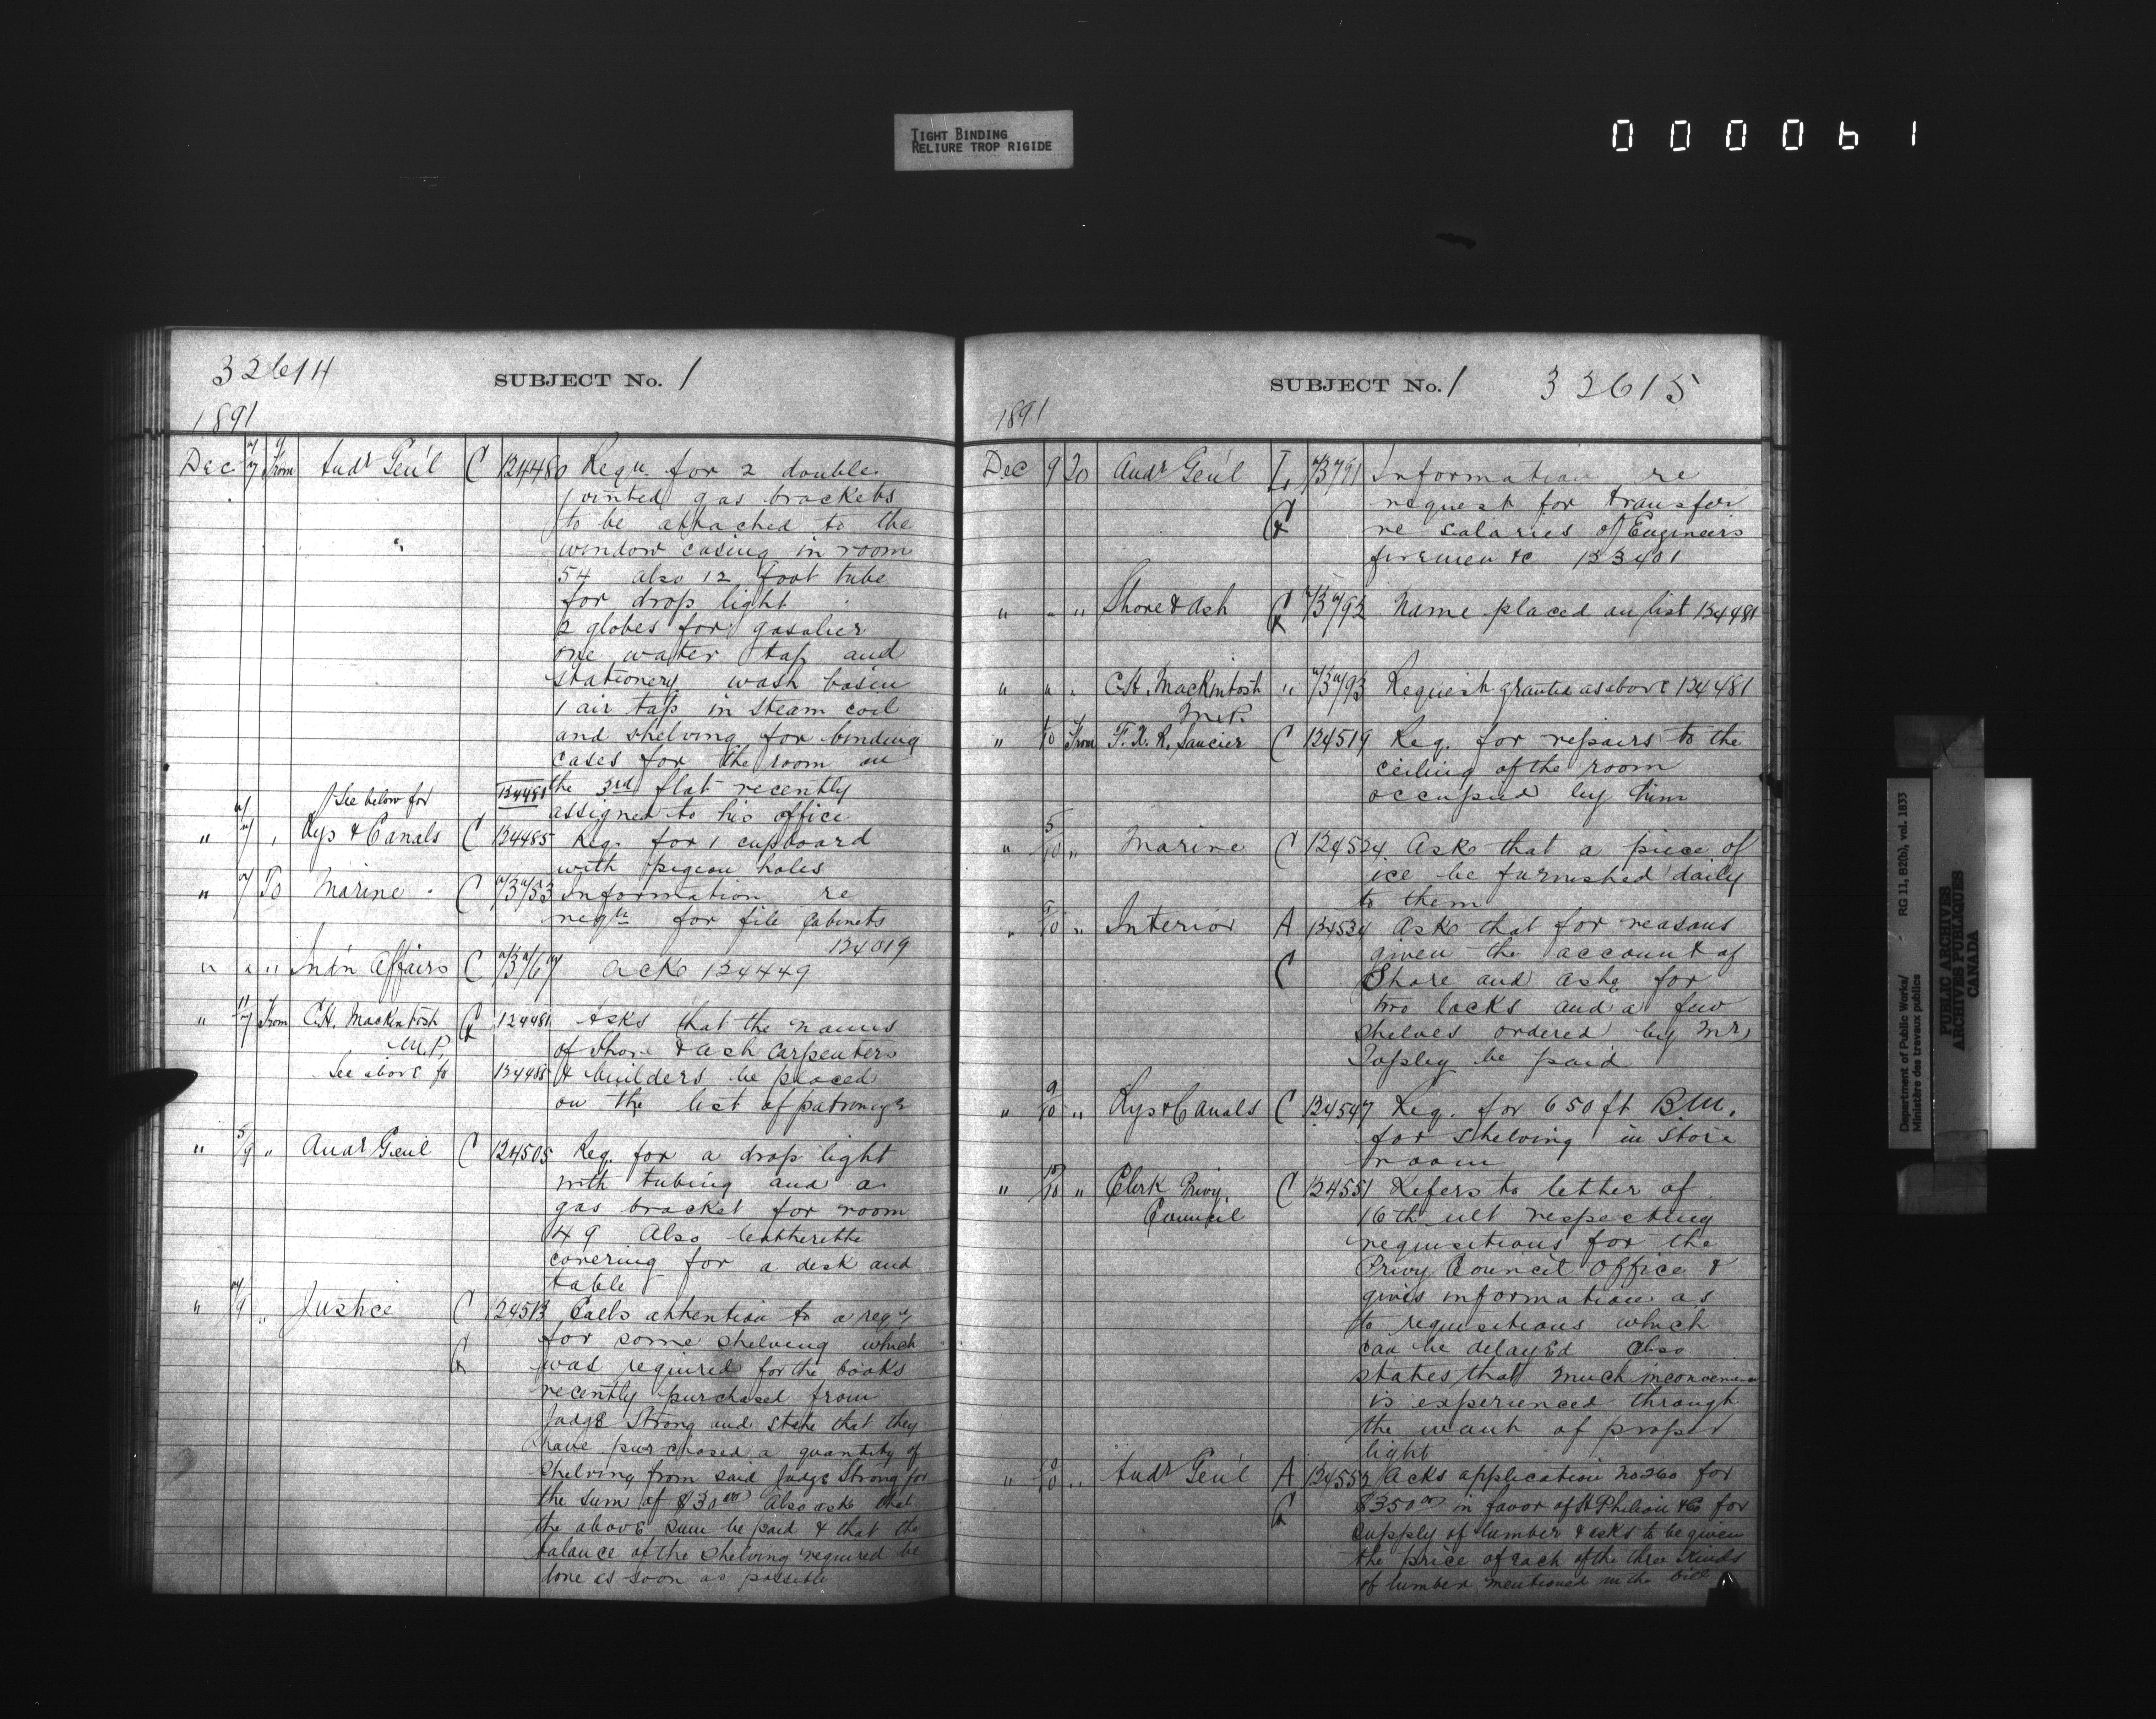 TIGHT BINDING
RELIURE TROP RIGIDE
000061
32614
SUBJECT No. 1
1891
Dec 7 From Audr Gen'l C 124480 Requn for 2 double
jointed gas brackets
to be attached to the
window casing in room
54 also 12 foot tube
for drop light
2 globes for gasalier
one water tap and
stationery wash basin
1 air tap in steam coil
and shelving for binding
cases for the room on
the 3rd flat recently
See below for 124481
assigned to his office
" 7 " Rys & Canals C 124485 Req. for 1 cupboard
with pigeon holes
" 7 To Marine C Information re
reqn for file cabinets
124019
" " " Ind'n Affairs C Acks 124449
" 7 From C.H. Mackintosh 124481 Asks that the names
M.P. of Shore & Ash Carpenters
See above fo 124485 & builders be placed
on the list of patronage
" 5/9 " Audr Gen'l C 124505 Req. for a drop light
with tubing and a
gas bracket for room
49 Also leatherette
covering for a desk and
table
" 9 " Justice C 124513 Calls attention to a reqn
for some shelving which
was required for the books
recently purchased from
Judge Strong and state that they
have purchased a quantity of
shelving from said Judge Strong for
the sum of $30.00 Also ask that
the above sum be paid & that the
balance of the shelving required be
done as soon as possible
SUBJECT No. 1 32615
1891
Dec 9 To Audr Gen'l L Information re
request for transfer
re salaries of Engineers
firemen &c 123401
" " " Shore & Ash Name placed on list 124481
" " " C.H. Mackintosh " Request granted as above 124481
M.P.
" 10 From F. X. R. Saucier C 124519 Req. for repairs to the
ceiling of the room
occupied by him
" 5/10 " Marine C 124524 Asks that a piece of
ice be furnished daily
to them
" 10 " Interior A 124534 Asks that for reasons
given the account of
C Shore and Ashe for
two locks and a few
shelves ordered by Mr
Topley be paid
" 9/10 " Rys & Canals C 124547 Req. for 650 ft B.M.
for shelving in store
room
" 10 " Clerk Privy C 124551 Refers to letter of
Council 16th ult respecting
requisitions for the
Privy Council Office &
gives information as
to requisitions which
can be delayed Also
states that much inconvenience
is experienced through
the want of proper
light
" 10 " Audr Gen'l A 124552 Acks application No 260 for
$350.00 in favor of H Philion & Co for
supply of lumber & asks to be given
the price of each of the three kinds
of lumber mentioned in the bill
Department of Public Works/
Ministère des travaux publics
RG 11, B2(b), vol. 1833
PUBLIC ARCHIVES
ARCHIVES PUBLIQUES
CANADA